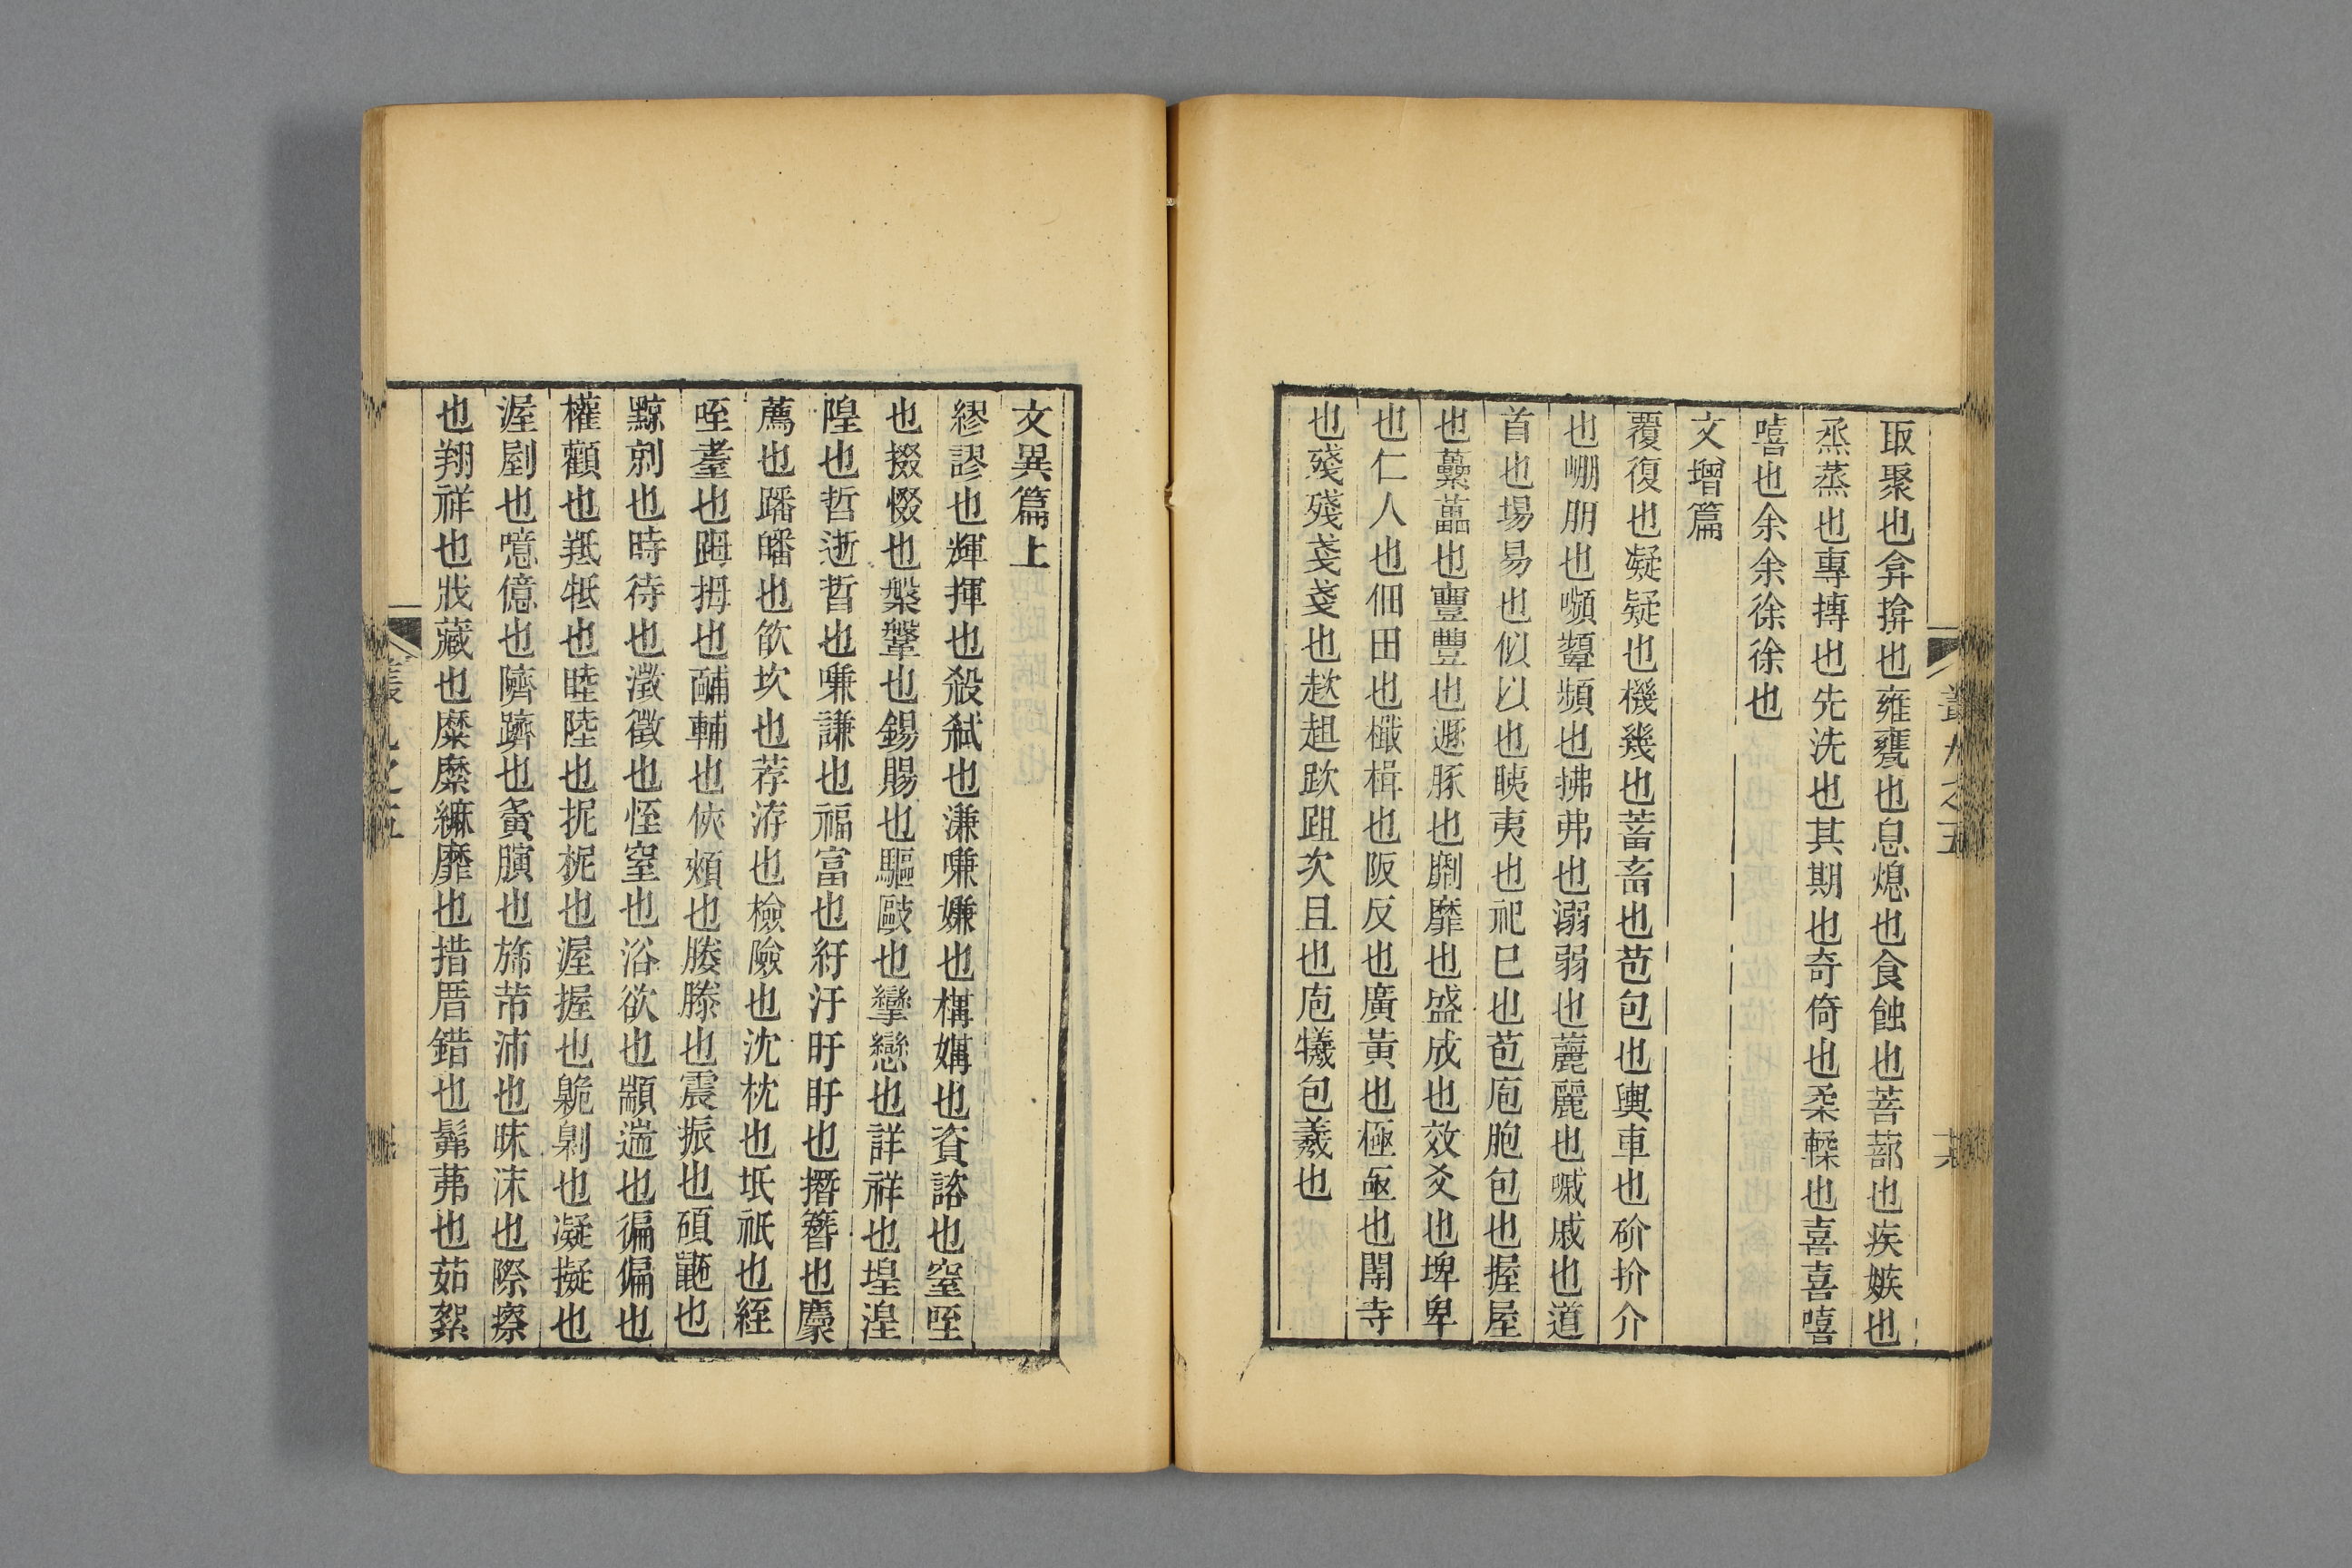 取聚也弇揜也雍甕也息熄也食蝕也菩蔀也疾嫉也
烝蒸也專摶也先洗也其期也奇倚也柔輮也喜喜嘻
嘻也余余徐徐也
文增篇
覆復也凝疑也機幾也蓄畜也苞包也輿車也砎扴介
也崩朋也嚬顰頻也拂弗也溺弱也麗也嘁戚也道
首也埸易也似以也眱夷也祀巳也苞庖胞包也握屋
也蘽藟也豐也遯豚也劘靡也盛成也效爻也埤卑
也仁人也佃田也檝楫也阪反也廣黃也極亟也閽寺
也殘殘戔戔也趑趄趺跙次且也庖犧包羲也
叢九之五
文異篇上
繆謬也輝揮也殺弒也溓嗛嫌也構媾也資諮也窒咥
也掇惙也槃鞶也錫賜也驅敺也攣戀也詳祥也堭湟
隍也晢逝晳也嗛謙也福富也紆汙旴盱也撍簪也麖
薦也蹯皤也欿坎也荐洊也檢險也沈枕也坁祇也絰
咥耋也踇拇也酺輔也俠頰也媵縢也震振也碩鼫也
黥劓也時待也澂徵也恎窒也浴欲也顓遄也徧偏也
權顴也羝牴也睦陸也抳柅也渥握也臲劓也凝擬也
渥剭也噫億也隮躋也夤䏰也旆芾沛也昧沬也際瘵
也翔祥也戕藏也糜縻䌕靡也措厝錯也髴茀也茹絮